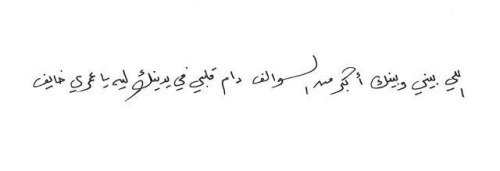 اللي بيني وبينك أكبر من السوالف دام قلبي في يدينك ليه يا عمري خايف